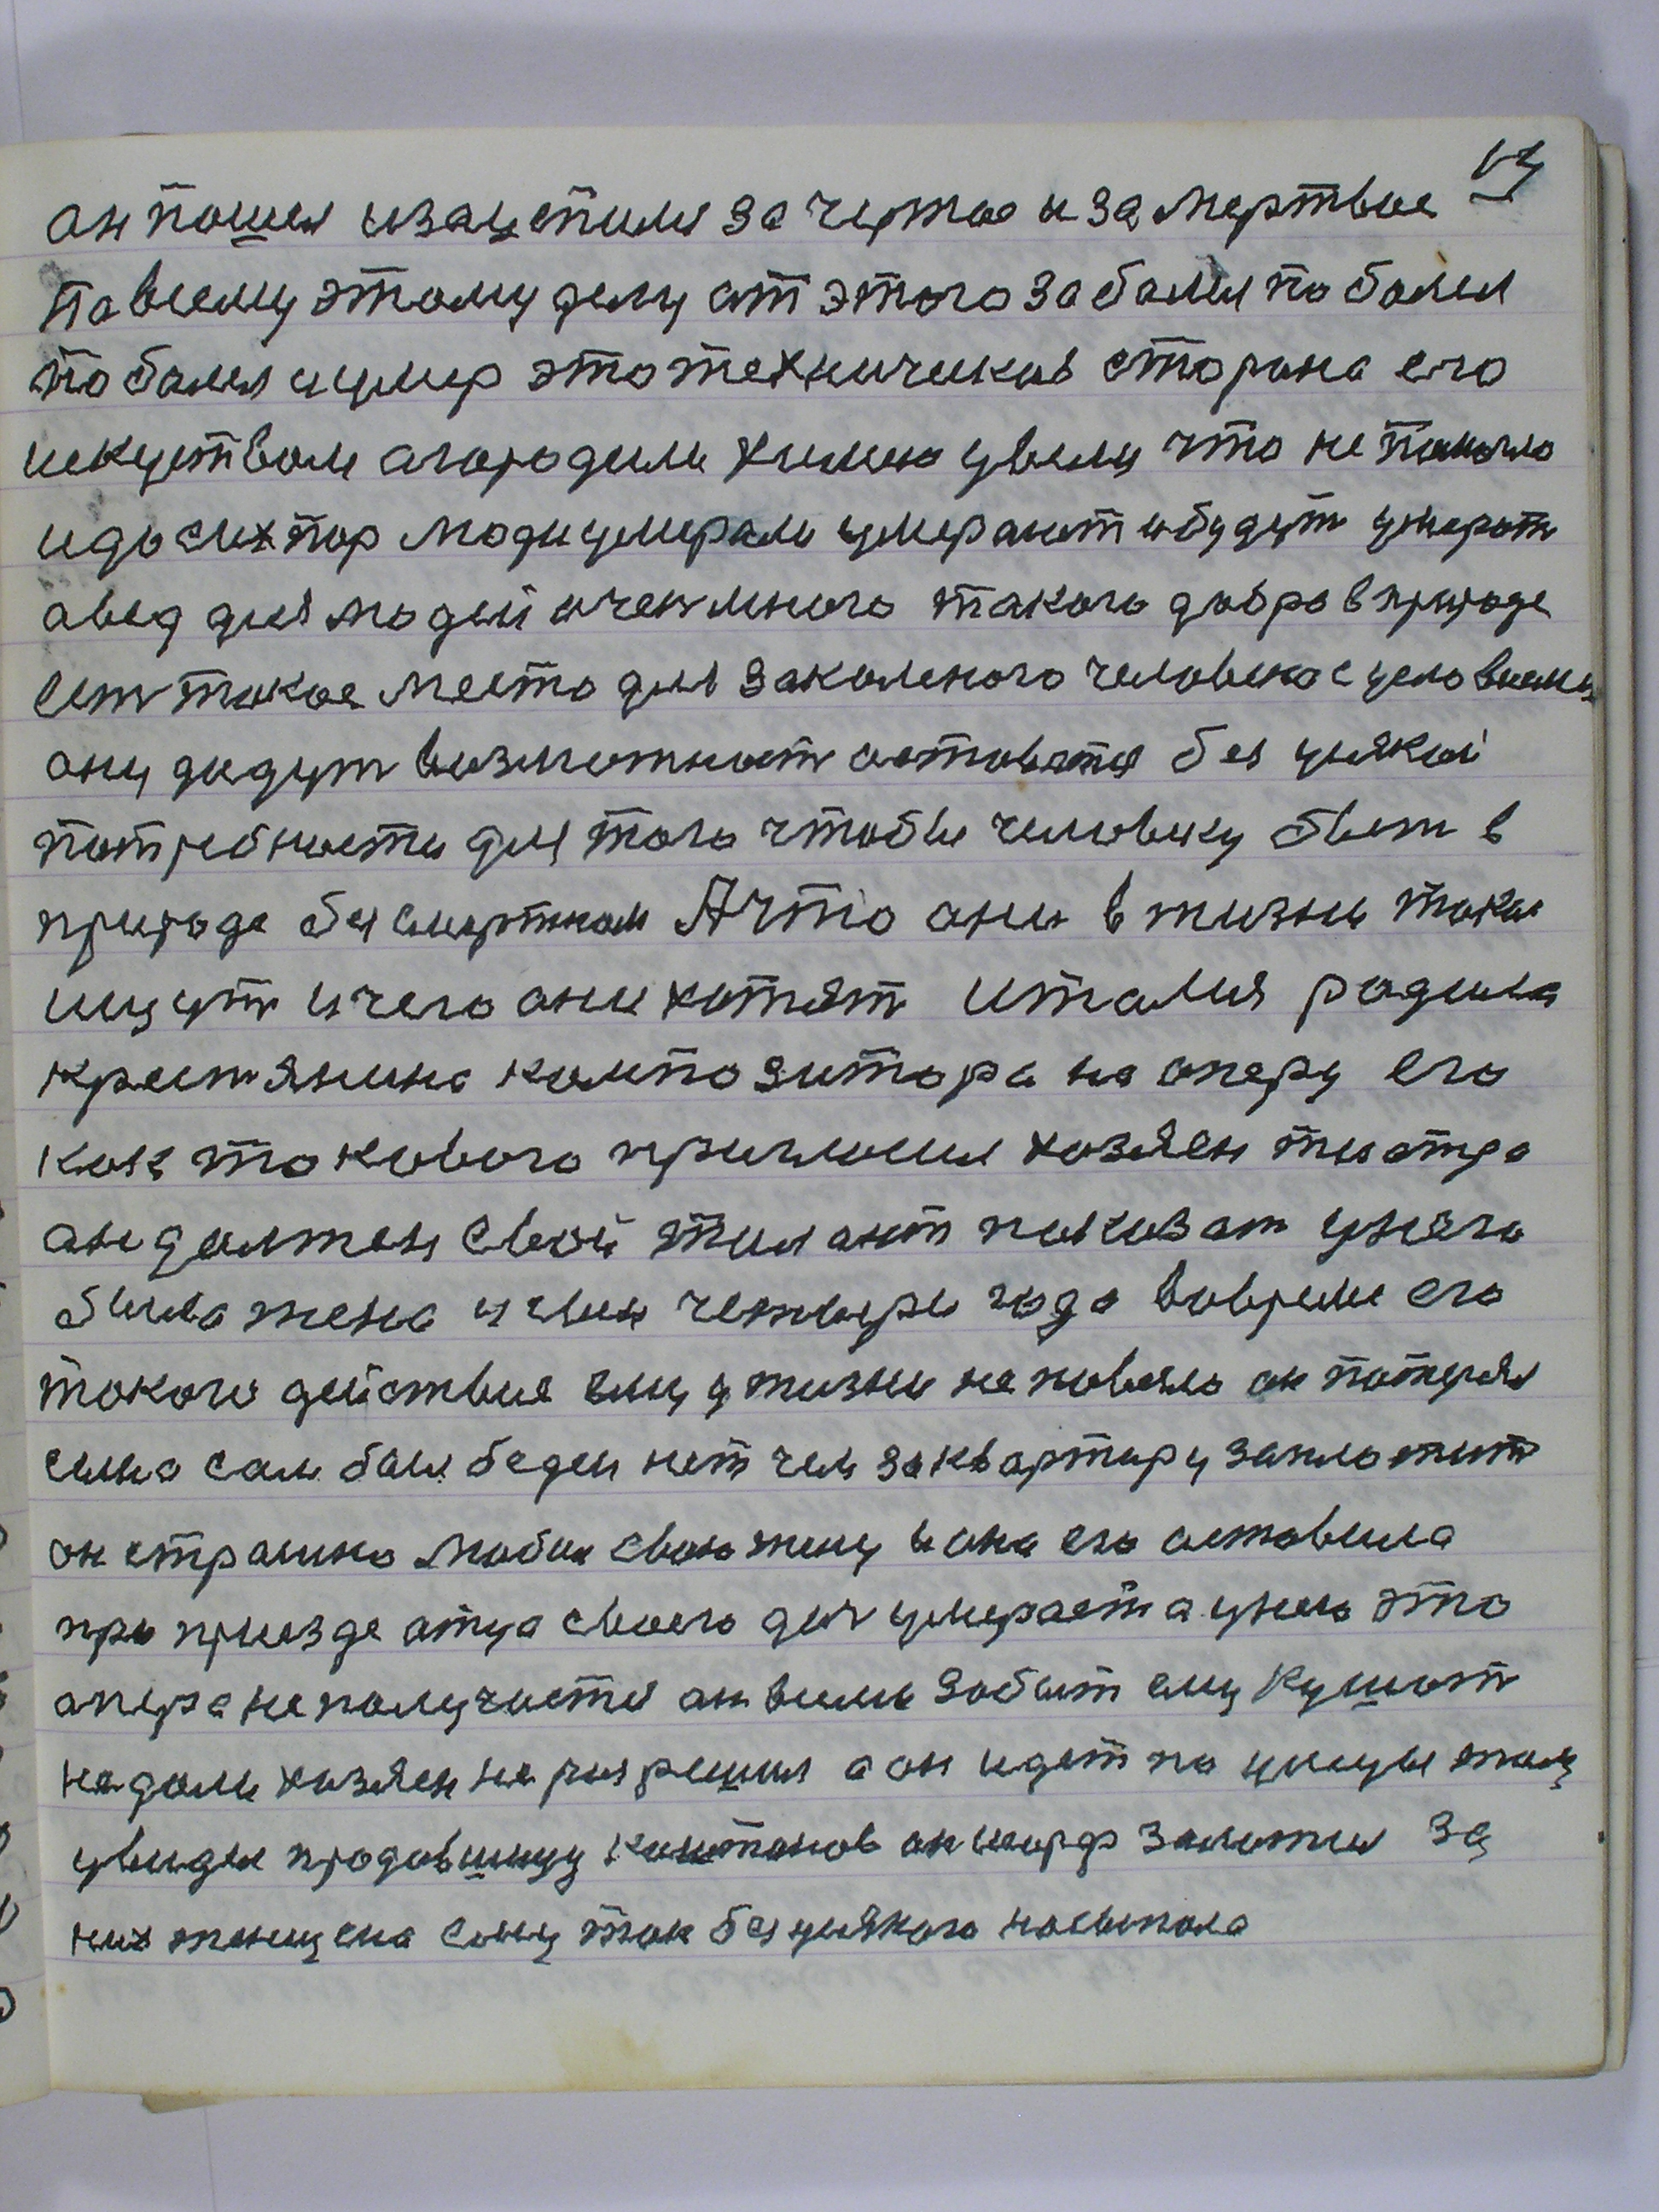 13
ан пошел изацепился за чужое и за мертвое
па всему этому делу ат этого забалел паболел
паболел и умер это техническая сторона его
искуством агородили химию увели что не памагло
и до сих пор люди умерали умерают и будут умерат
авед для людей очен много такого добра в природе
ест такое место для закаленого человека с условиями
ани дадут возможност астоватся без усякой
патребности для того чтобы человеку быт в
природе бессмертном А что ани в жизни такое
ищут и чего ани хотят италия радила
крестянина кампозитора на оперу его
как таковога пригласил хазяен тиатра
ан должен свой тилант паказат унего
была жена и сын четыри года вовремя его
такого действия ему у жизни не повезло ан патерял
сына сам был беден нет чем за квартиру заплатит
он страшно любил свою жену и она его аставила
при приезде атца своего дич умерает а унего эта
апера не получается ан весь забыт ему кушат
не дали хазяен не разрешил а он идет по улицы там
увидел продавшицу каштанов ан шарф заложил за
них женщена сыму так без усякого насыпала